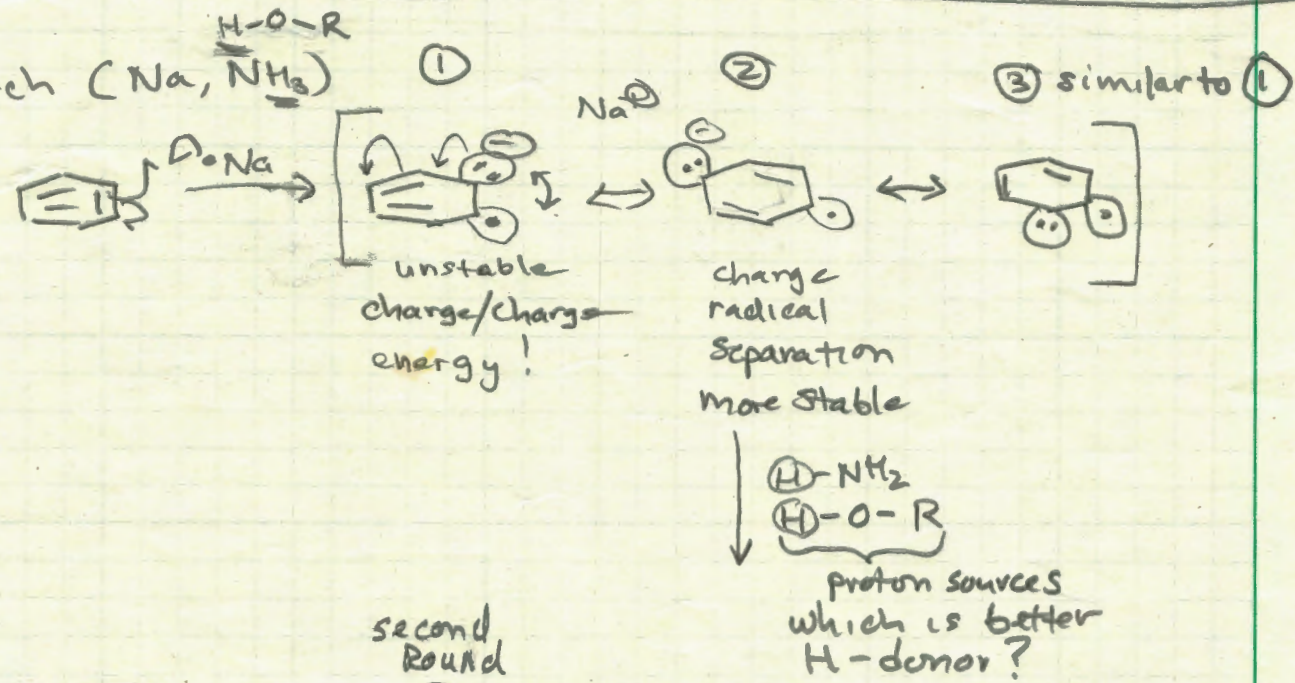 H-O-R
ch (Na, NH3)
① ② ③ similar to ①
Na⊕
Na
unstable
charge/charge
energy!
charge
radical
separation
more stable
H-NH2
H-O-R
proton sources
which is better
H-donor?
second
Round